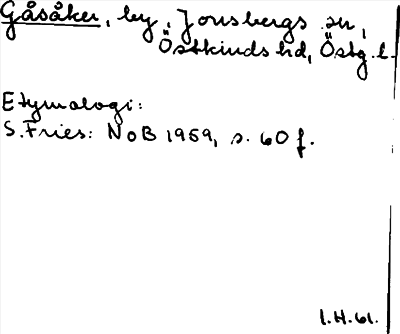 Gåsåker, by, Jonsbergs sn,
Östkinds hd, Östg.l.
Etymologi:
S. Fries: NoB 1959, s. 60 f.
I.H. 61.